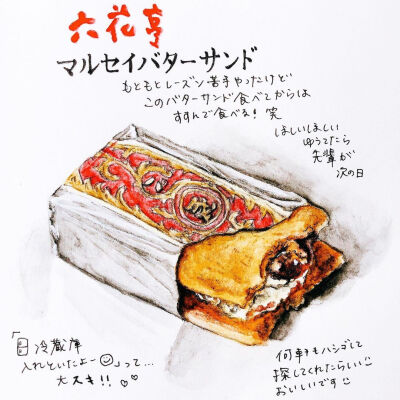 六花亭
マルセイバターサンド
もともとレーズン苦手やったけど
このバターサンド食べてからは
すすんで食べる! 笑
ほしいほしい
ゆうてたら
先輩が
次の日
「冷蔵庫
入れといたよー☺」って...
大スキ!! ♡♡
何軒もハシゴして
探してくれたらしい☺
おいしいです☺